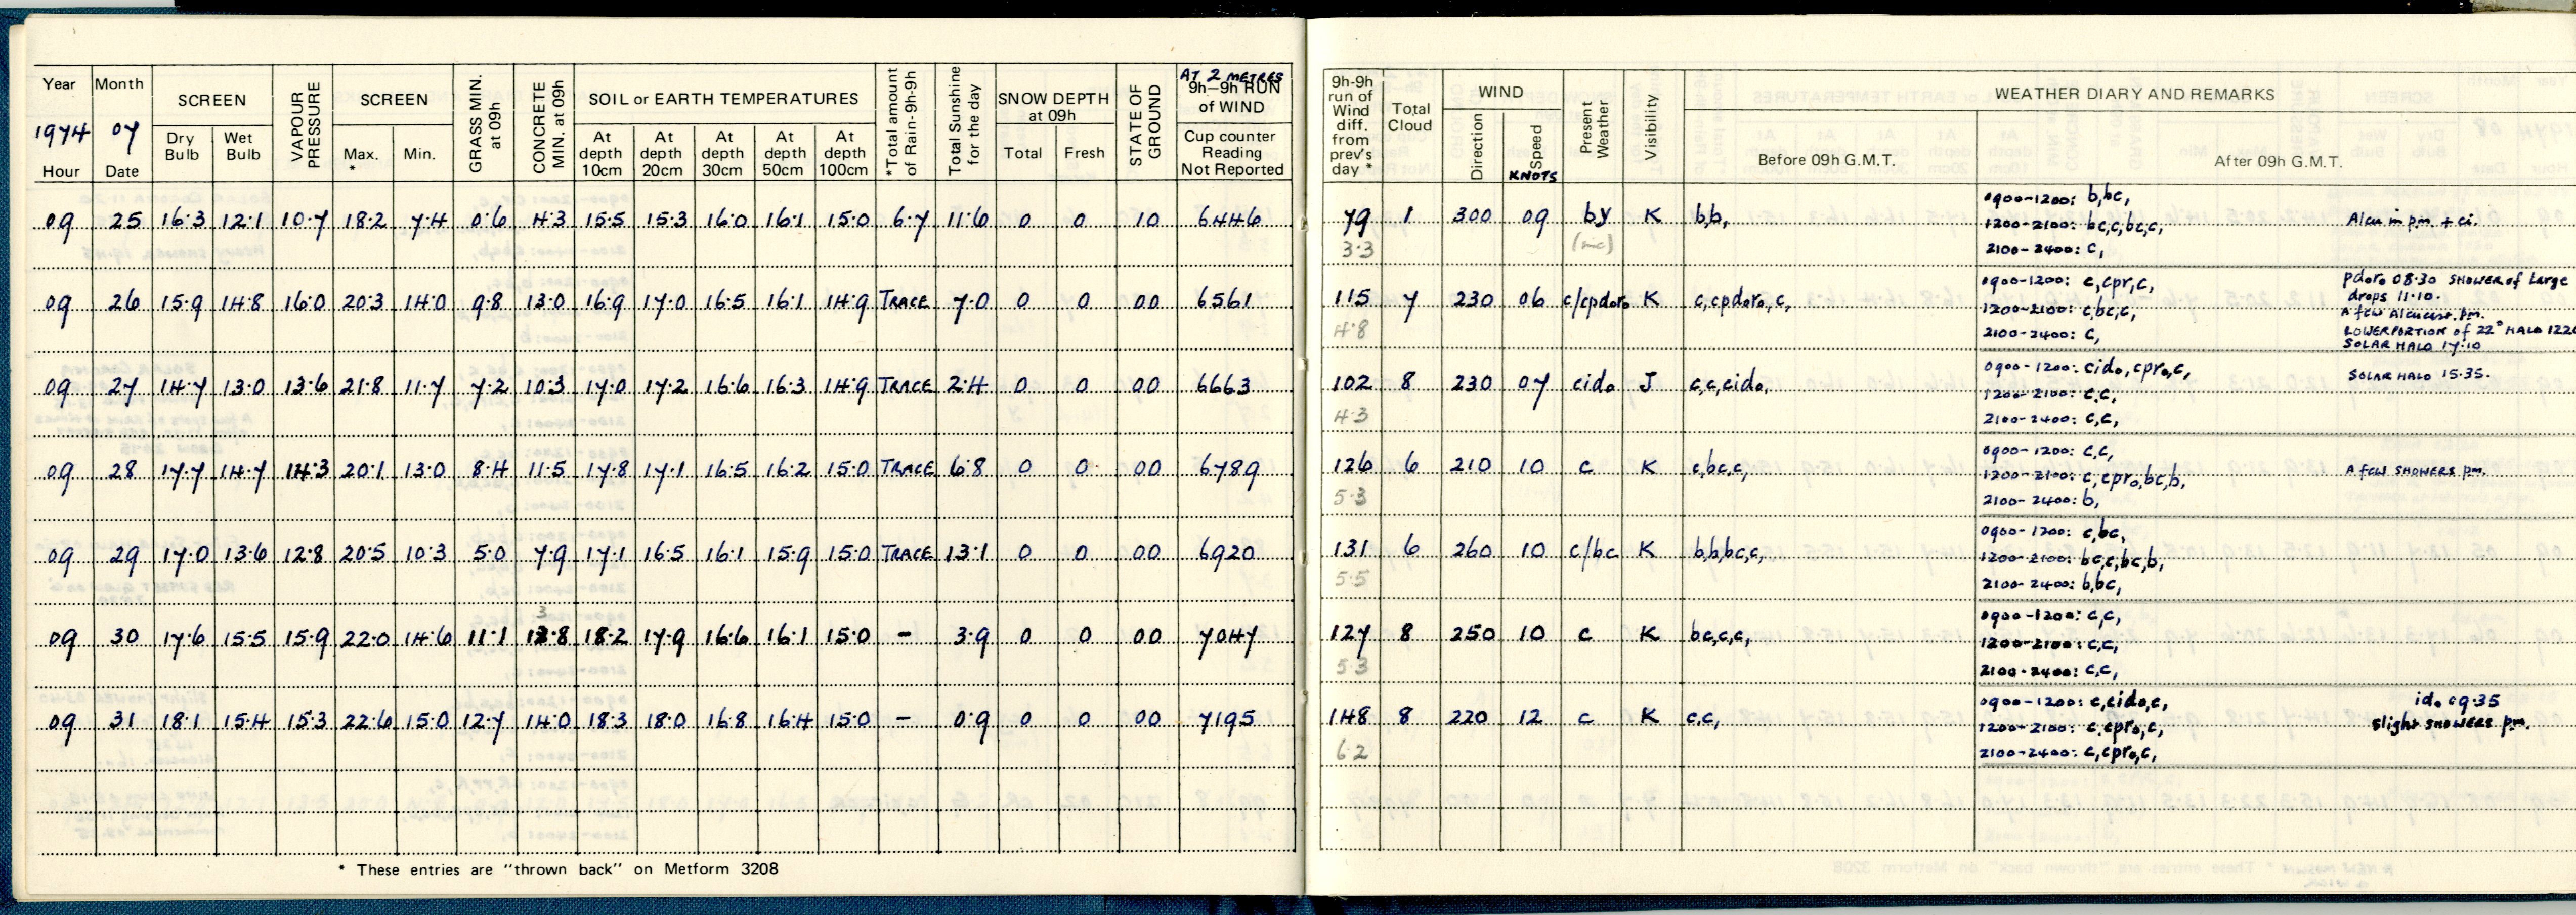 Year Month SCREEN VAPOUR PRESSURE SCREEN GRASS MIN. at 09h CONCRETE MIN. at 09h SOIL or EARTH TEMPERATURES *Total amount of Rain-9h-9h Total Sunshine for the day SNOW DEPTH at 09h STATE OF GROUND AT 2 METRES 9h-9h RUN of WIND
1974 07 Dry Bulb Wet Bulb Max. * Min. At depth 10cm At depth 20cm At depth 30cm At depth 50cm At depth 100cm Total Fresh Cup counter Reading Not Reported
Hour Date
09 25 16·3 12·1 10·7 18·2 7·4 0·6 4·3 15·5 15·3 16·0 16·1 15·0 6·7 11·6 0 0 10 6446
09 26 15·9 14·8 16·0 20·3 14·0 9·8 13·0 16·9 17·0 16·5 16·1 14·9 TRACE 7·0 0 0 00 6561
09 27 14·7 13·0 13·6 21·8 11·7 7·2 10·3 17·0 17·2 16·6 16·3 14·9 TRACE 2·4 0 0 00 6663
09 28 17·7 14·7 14·3 20·1 13·0 8·4 11·5 17·8 17·1 16·5 16·2 15·0 TRACE 6·8 0 0 00 6789
09 29 17·0 13·6 12·8 20·5 10·3 5·0 7·9 17·1 16·5 16·1 15·9 15·0 TRACE 13·1 0 0 00 6920
3
09 30 17·6 15·5 15·9 22·0 14·6 11·1 13·8 18·2 17·9 16·6 16·1 15·0 - 3·9 0 0 00 7047
09 31 18·1 15·4 15·3 22·6 15·0 12·7 14·0 18·3 18·0 16·8 16·4 15·0 - 0·9 0 0 00 7195
* These entries are "thrown back" on Metform 3208
9h-9h run of Wind diff. from prev's day * Total Cloud WIND Present Weather Visibility WEATHER DIARY AND REMARKS
Direction Speed KNOTS Before 09h G.M.T. After 09h G.M.T.
0900-1200: b,bc,
79 1 300 09 by K b,b, 1200-2100: bc,c,bc,c, Alcu in pm. + ci.
3·3 2100-2400: c,
0900-1200: c,cpr,c, pdoro 08·30 SHOWER of Large drops 11·10.
115 7 230 06 c/cpdoro K c,cpdoro,c, 1200-2100: c,bc,c, A few Alcucast. pm.
4·8 2100-2400: c, LOWER PORTION of 22° HALO 122
SOLAR HALO 17·10
0900-1200: cido,cpro,c, SOLAR HALO 15·35.
102 8 230 07 cido J c,c,cido, 1200-2100: c,c,
4·3 2100-2400: c,c,
0900-1200: c,c,
126 6 210 10 c K c,bc,c, 1200-2100: c,cpro,bc,b, A few SHOWERS pm.
5·3 2100-2400: b,
0900-1200: c,bc,
131 6 260 10 c/bc K b,b,bc,c, 1200-2100: bc,c,bc,b,
5·5 2100-2400: b,bc,
0900-1200: c,c,
127 8 250 10 c K bc,c,c, 1200-2100: c,c,
5·3 2100-2400: c,c,
0900-1200: c,cido,c, ido 09·35
148 8 220 12 c K c,c, 1200-2100: c,cpro,c, slight SHOWERS pm.
6·2 2100-2400: c,cpro,c,